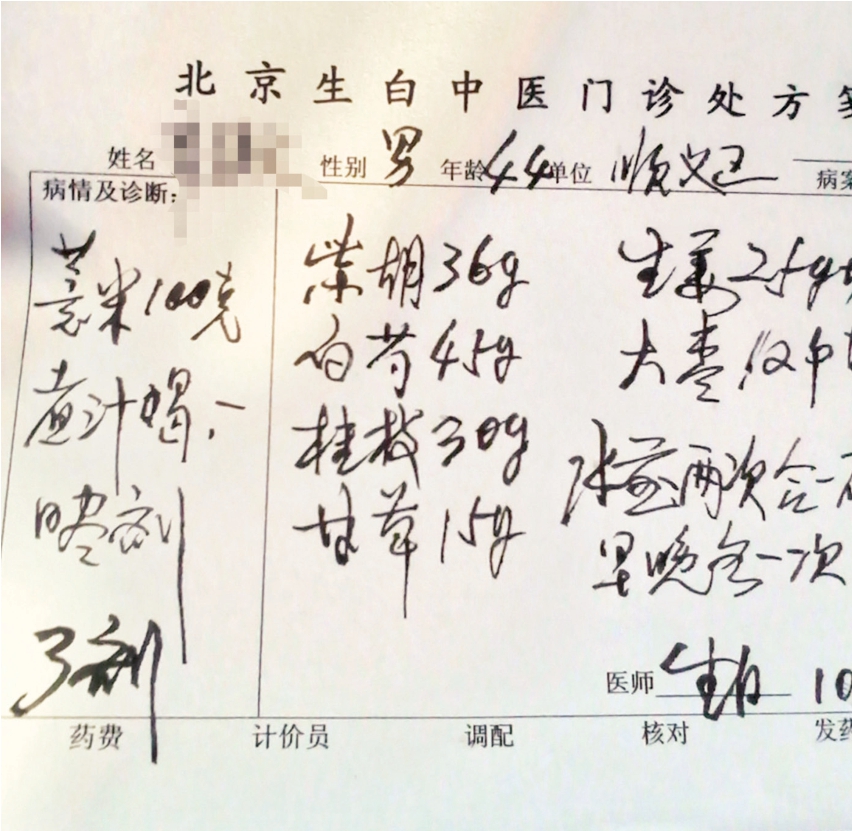 北京生白中医门诊处方笺
姓名 性别 男 年龄 44 单位 顺义区 病案
病情及诊断:
薏米100克
煮汁喝.
剂
3剂
柴胡36g
白芍45g
桂枝30g
甘草15g
生姜25g切
大枣12枚
水煎两次合一
早晚各一次
医师 生白 10
药费 计价员 调配 核对 发药